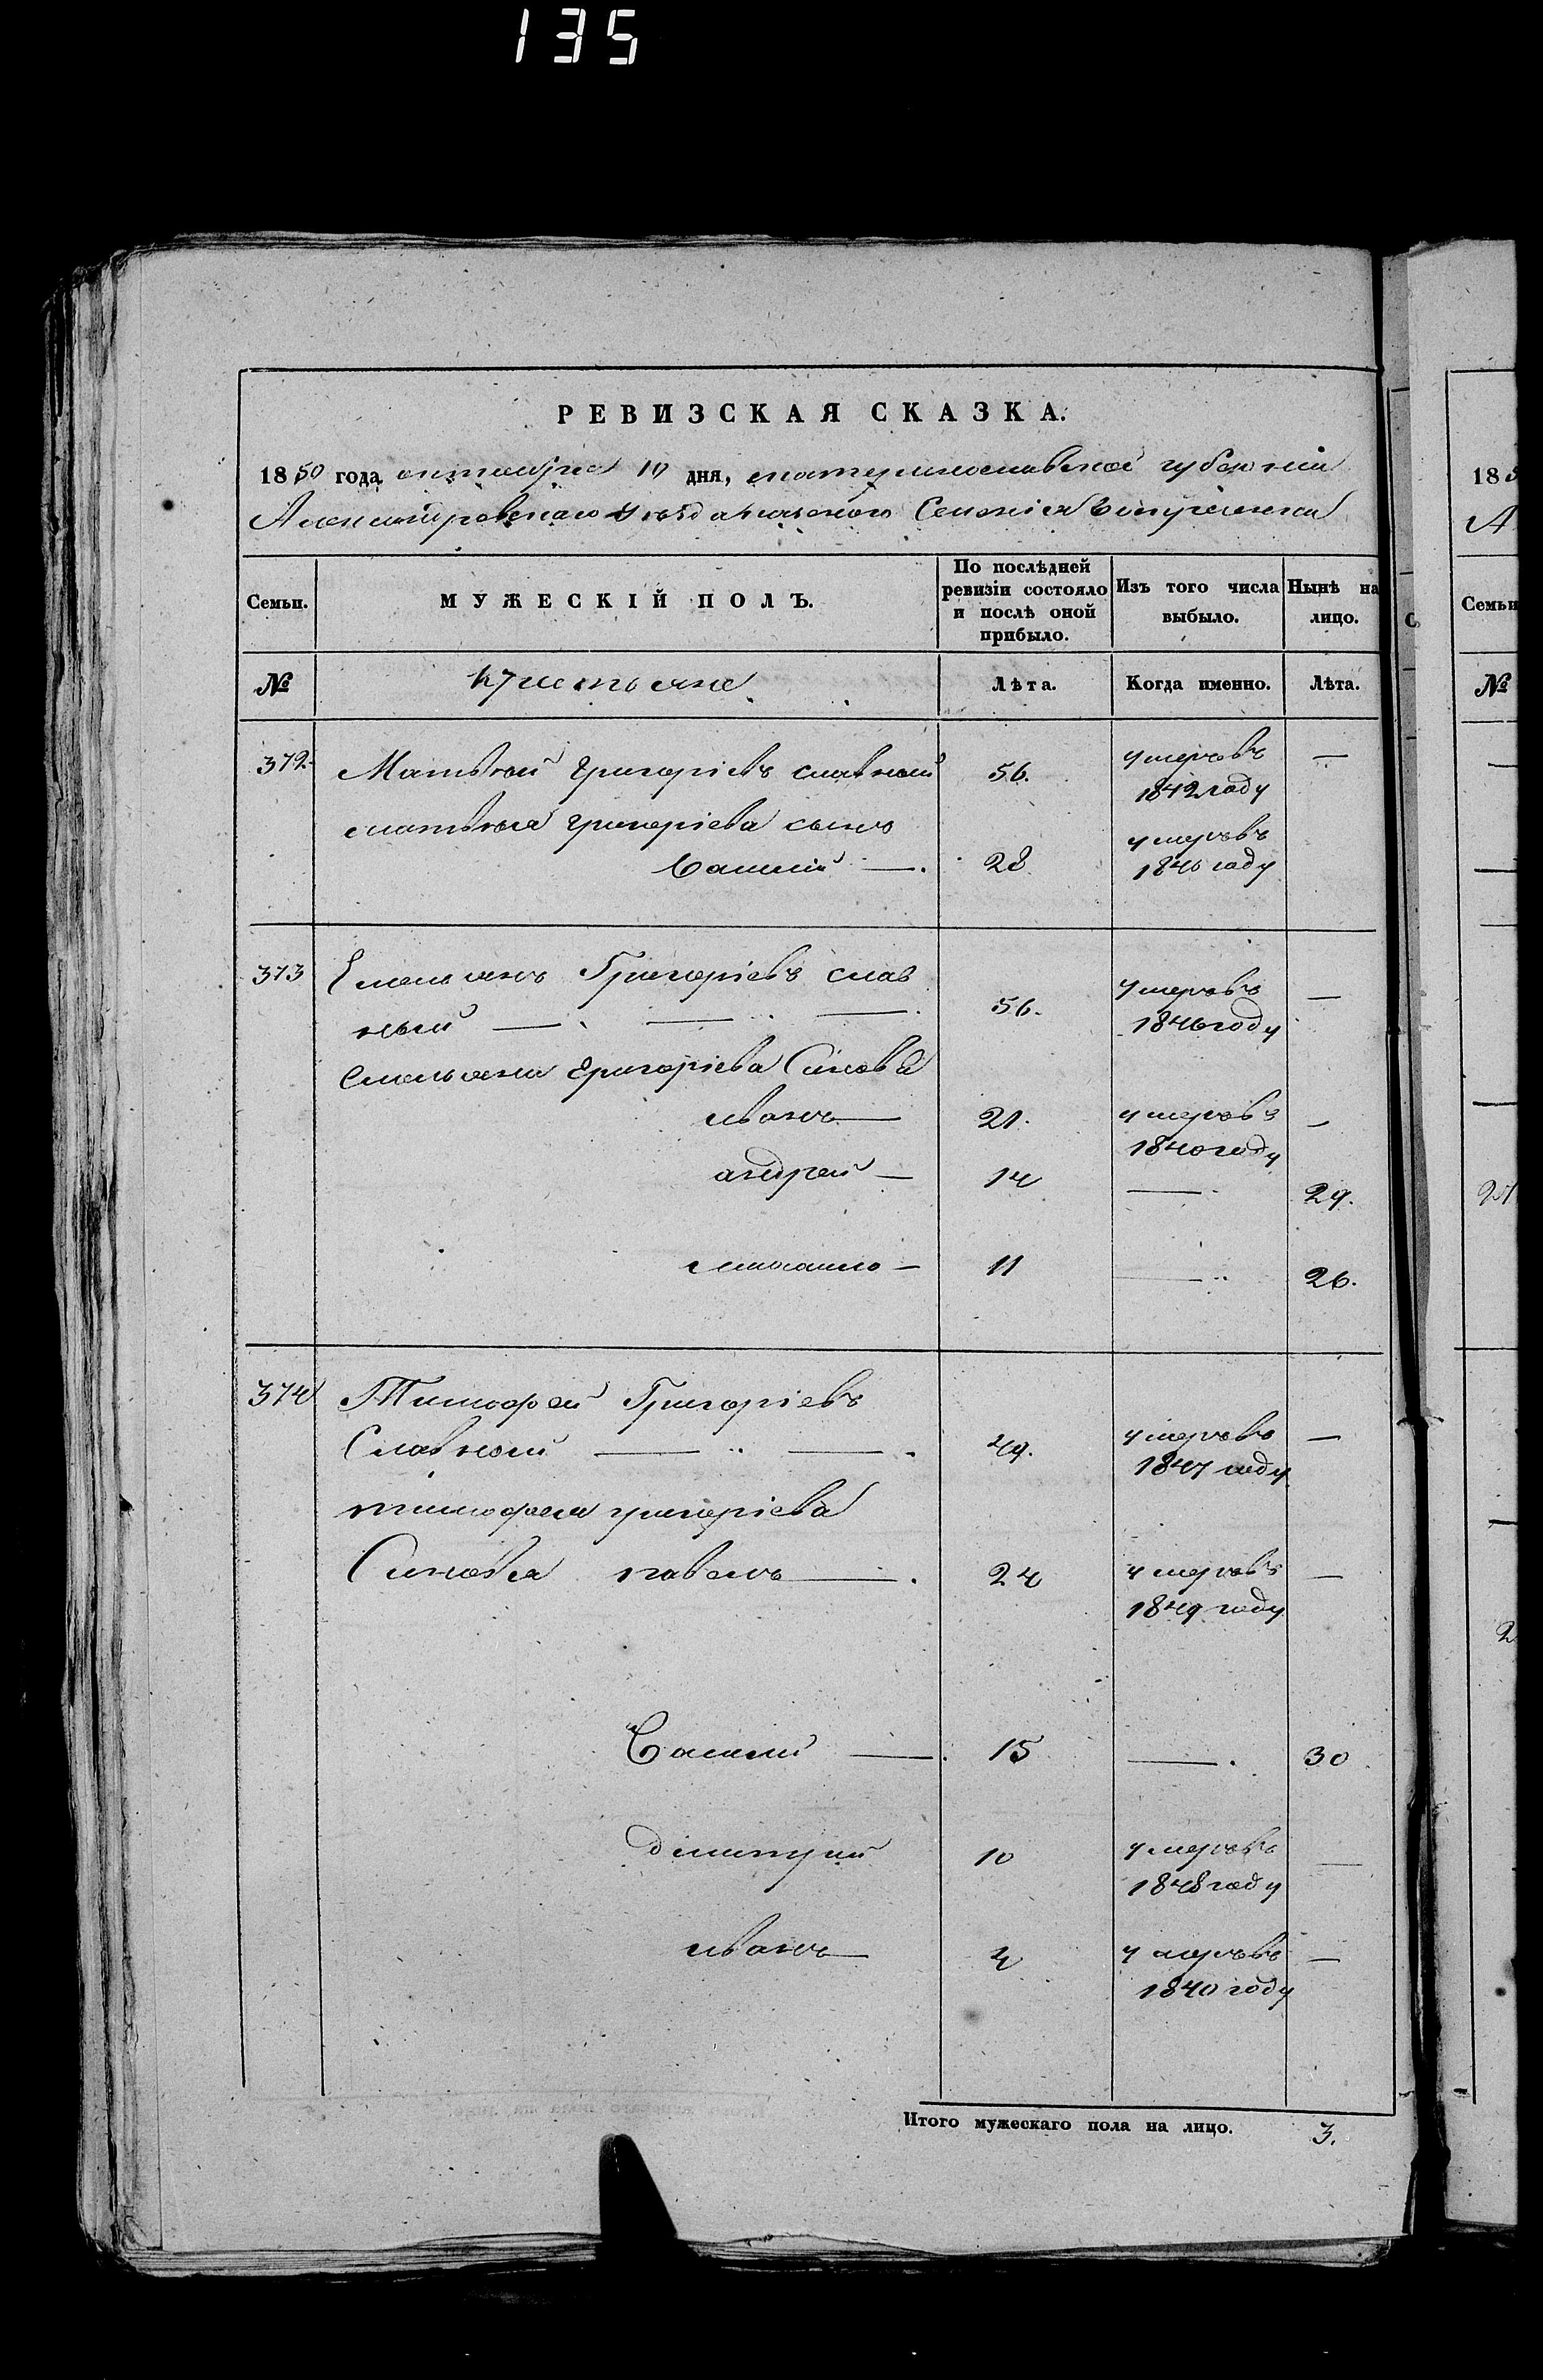 135
РЕВИЗСКАЯ СКАЗКА.
1850 года октября 10 дня, екатеринославской губернии
Александровскаго уезда казеного Селения
Семьи. МУЖЕСКІЙ ПОЛЪ. По послѣдней ревизіи состояло и послѣ оной прибыло. Изъ того числа выбыло. Нынѣ на лицо.
№ крестьяне Лѣта. Когда именно. Лѣта.
372. Матвѣй Григоріевъ славной 56. умеръ въ —
1842 году
матвѣя григоріева сынъ
Василий —. 28. умеръ въ
1846 году
373 Емельянъ Григоріевъ слав
ный — — — 56. умеръ въ —
1846 году
Емельяна григоріева Синовя
иванъ — 21. умеръ въ —
1840 году
андрей — 14 — 29.
михаило — 11 — 26.
374 Тимофей Григоріевъ
Славной — — 49. умеръ въ —
1847 году
тимофея григоріева
Синовя павелъ — 24 умеръ въ —
1849 году
Василий — 15 — 30
димитрий 10 умеръ въ —
1848 году
иванъ — 4 умеръ въ —
1840 году
Итого мужескаго пола на лицо. 3.
185
А
Семьи
№